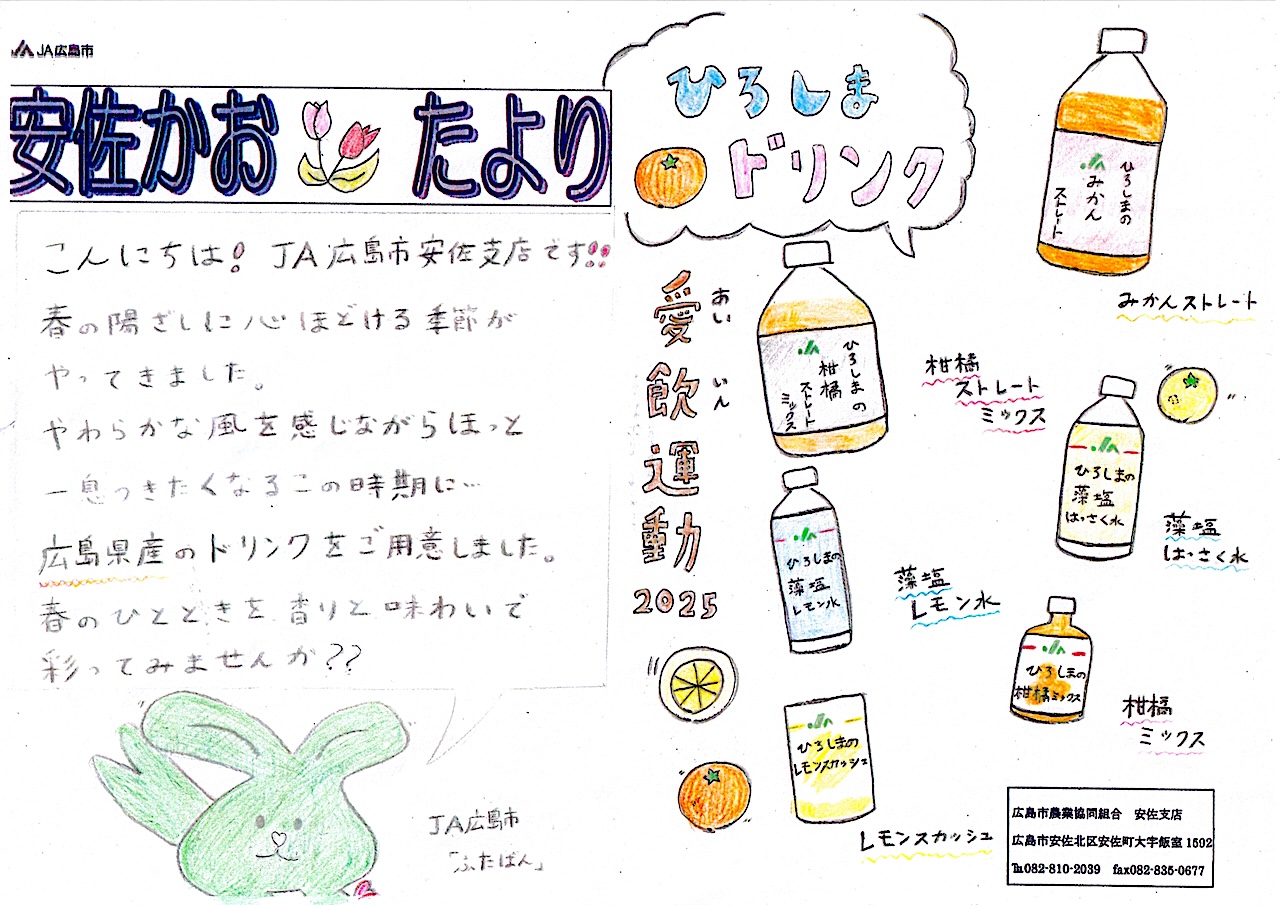 JA広島市
安佐かお たより
こんにちは! JA広島市安佐支店です!!
春の陽ざしに心ほどける季節が
やってきました。
やわらかな風を感じながらほっと
一息つきたくなるこの時期に…
広島県産のドリンクをご用意しました。
春のひとときを香りと味わいで
彩ってみませんか??
JA広島市
「ふたばん」
ひろしま
ドリンク
愛飲運動
あい
いん
2025
ひろしまの
みかん
ストレート
みかんストレート
ひろしまの
柑橘
ストレート
ミックス
柑橘
ストレート
ミックス
ひろしまの
藻塩
はっさく水
藻塩
はっさく水
ひろしまの
藻塩
レモン水
藻塩
レモン水
ひろしまの
柑橘ミックス
柑橘
ミックス
ひろしまの
レモンスカッシュ
レモンスカッシュ
広島市農業協同組合 安佐支店
広島市安佐北区安佐町大字飯室1592
℡082-810-2039 fax082-835-0677